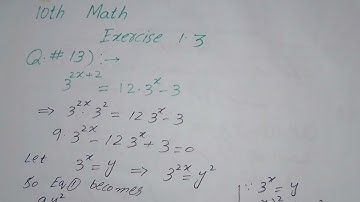 10th Math
Exercise 1.3
Q.# 13):→
3^{2x+2} = 12.3^x - 3
⇒ 3^{2x}. 3^2 = 12 3^x - 3
9. 3^{2x} - 12 3^x + 3 = 0
Let 3^x = y ⇒ 3^{2x} = y^2
So Eq① becomes | ∵ 3^x = y
9y^2